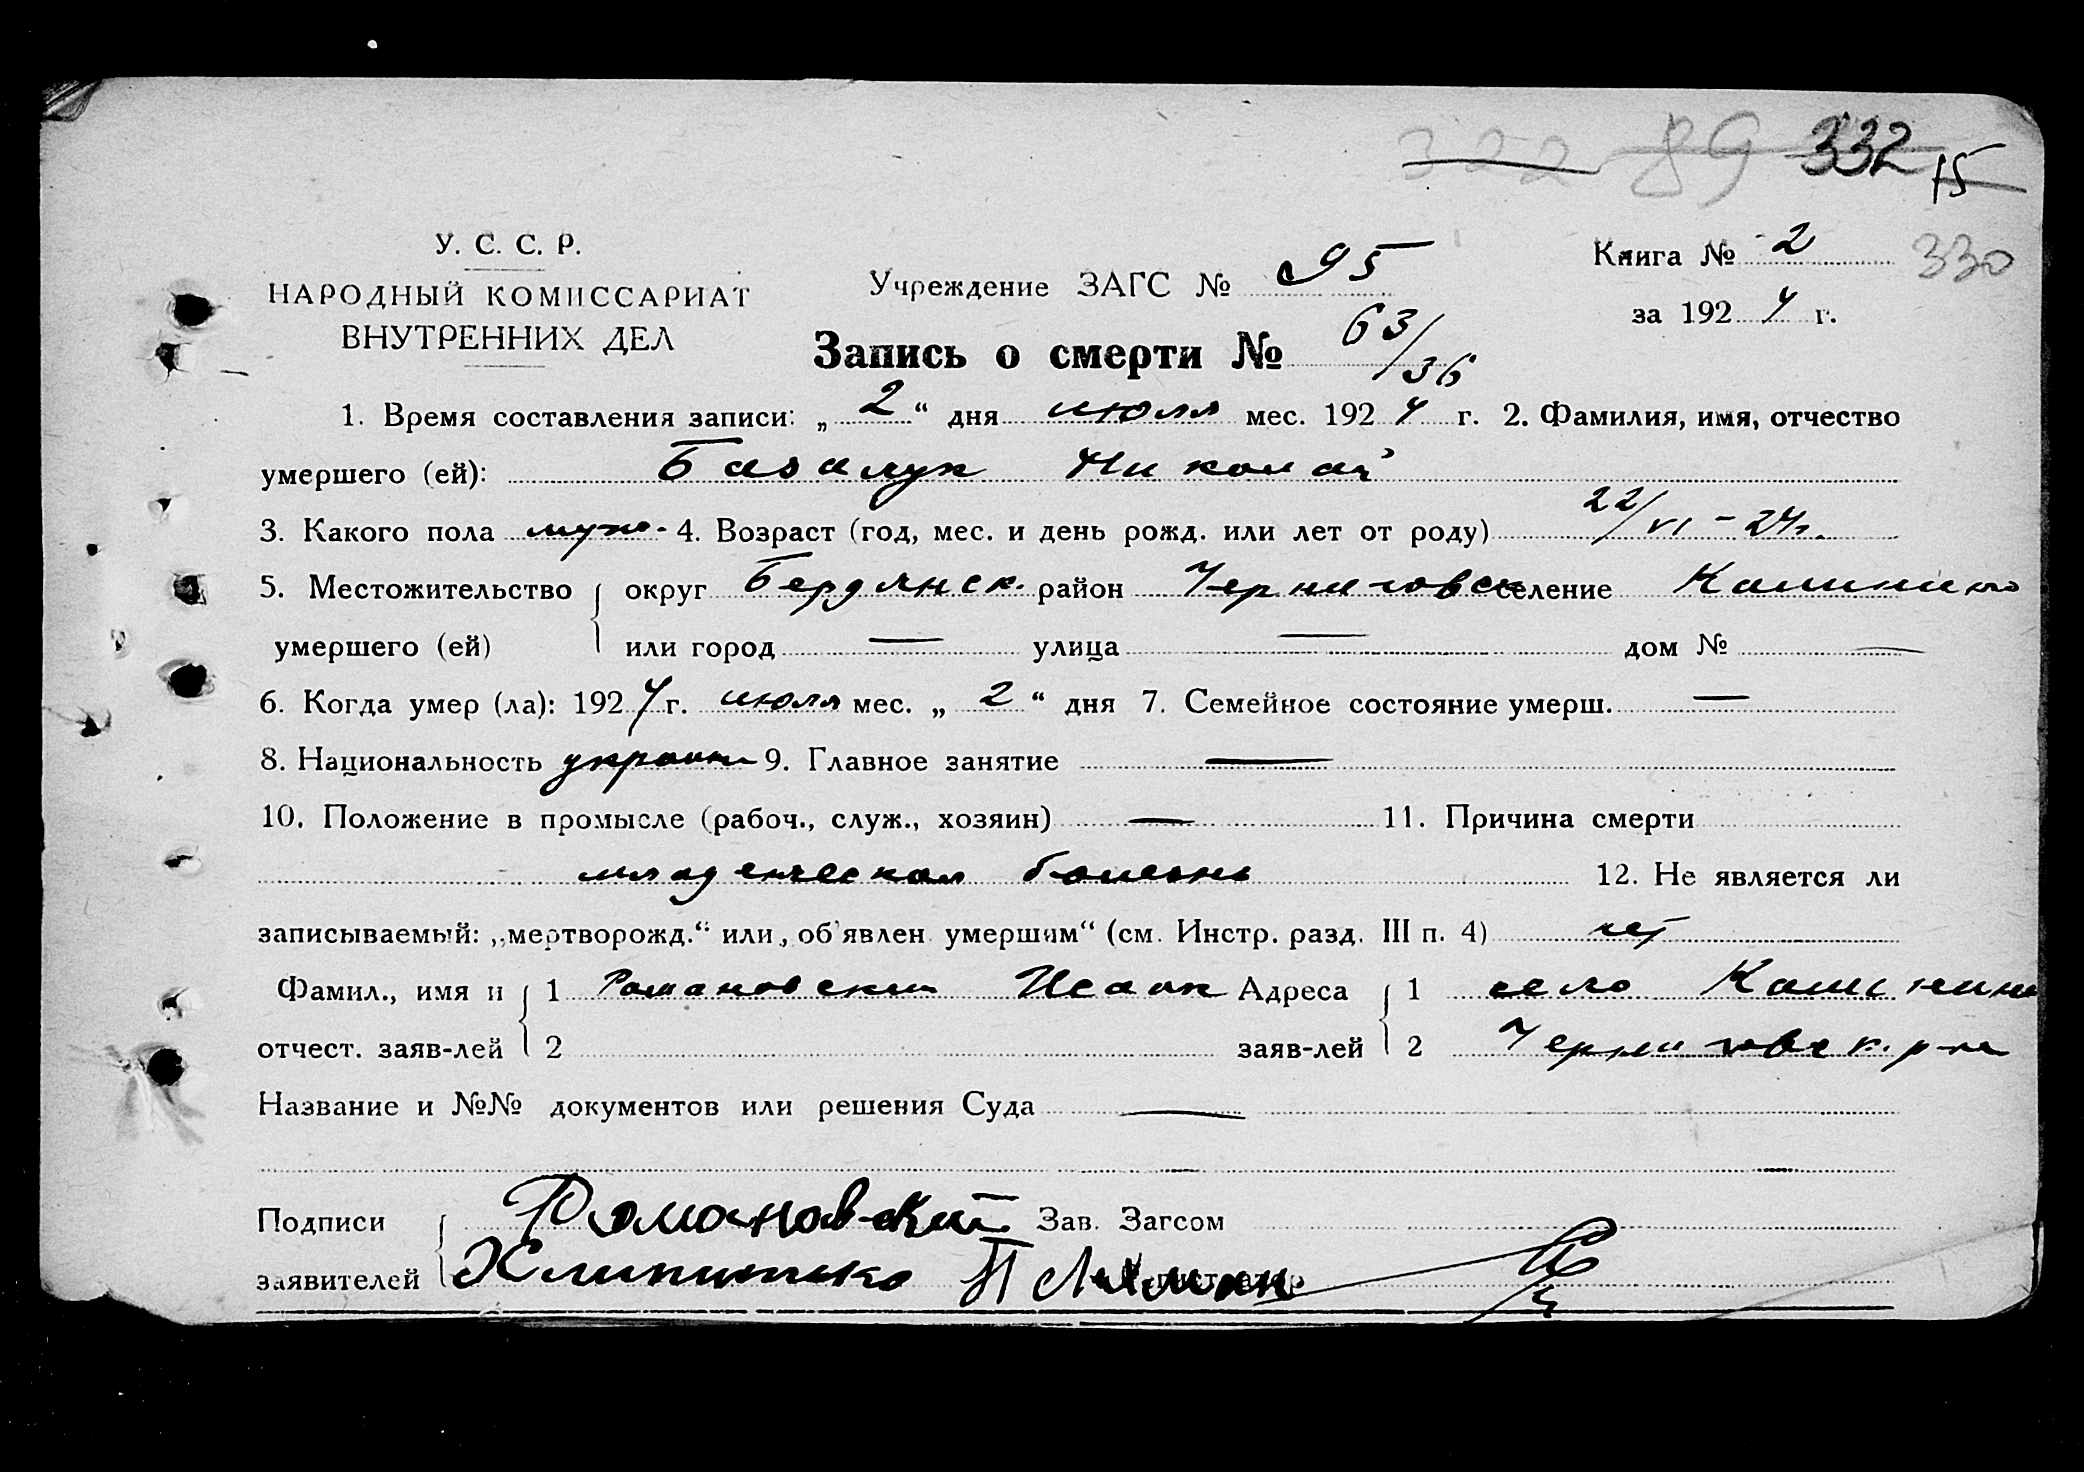 322 89 332 15
У. С. С. Р.
НАРОДНЫЙ КОМИССАРИАТ
ВНУТРЕННИХ ДЕЛ
Учреждение ЗАГС № 95
Книга № 2 330
за 1924 г.
Запись о смерти № 63/36
1. Время составления записи: „2“ дня июля мес. 1924 г. 2. Фамилия, имя, отчество
умершего (ей): Базалук Николай
3. Какого пола муж. 4. Возраст (год, мес. и день рожд. или лет от роду) 22/VI – 24 г.
5. Местожительство округ Бердянск. район Черниговск селение Калинино
умершего (ей) или город — улица — дом № —
6. Когда умер (ла): 1924 г. июля мес. „2“ дня 7. Семейное состояние умерш. —
8. Национальность 9. Главное занятие —
10. Положение в промысле (рабоч., служ., хозяин) — 11. Причина смерти
младенческая болезнь 12. Не является ли
записываемый: „мертворожд.“ или „об'явлен умершим“ (см. Инстр. разд. III п. 4) нет
Фамил., имя и 1 Романовский Исаак Адреса 1 село Калинино
отчест. заяв-лей 2 заяв-лей 2 Черниговск. р-на
Название и №№ документов или решения Суда —
Подписи Романовский Зав. Загсом
заявителей